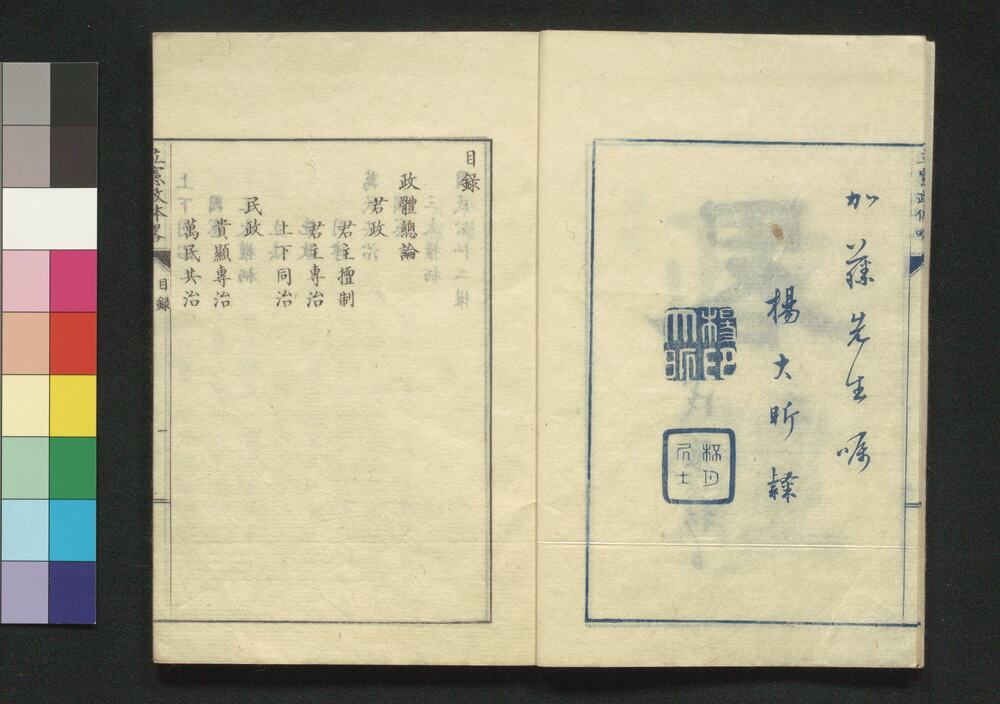 加藤先生嘱
楊大昕隸
楊印
大昕
目錄
政體總論
君政
君主擅制
君主專治
上下同治
民政
貴顯專治
萬民共治
立憲政體略
目錄
一